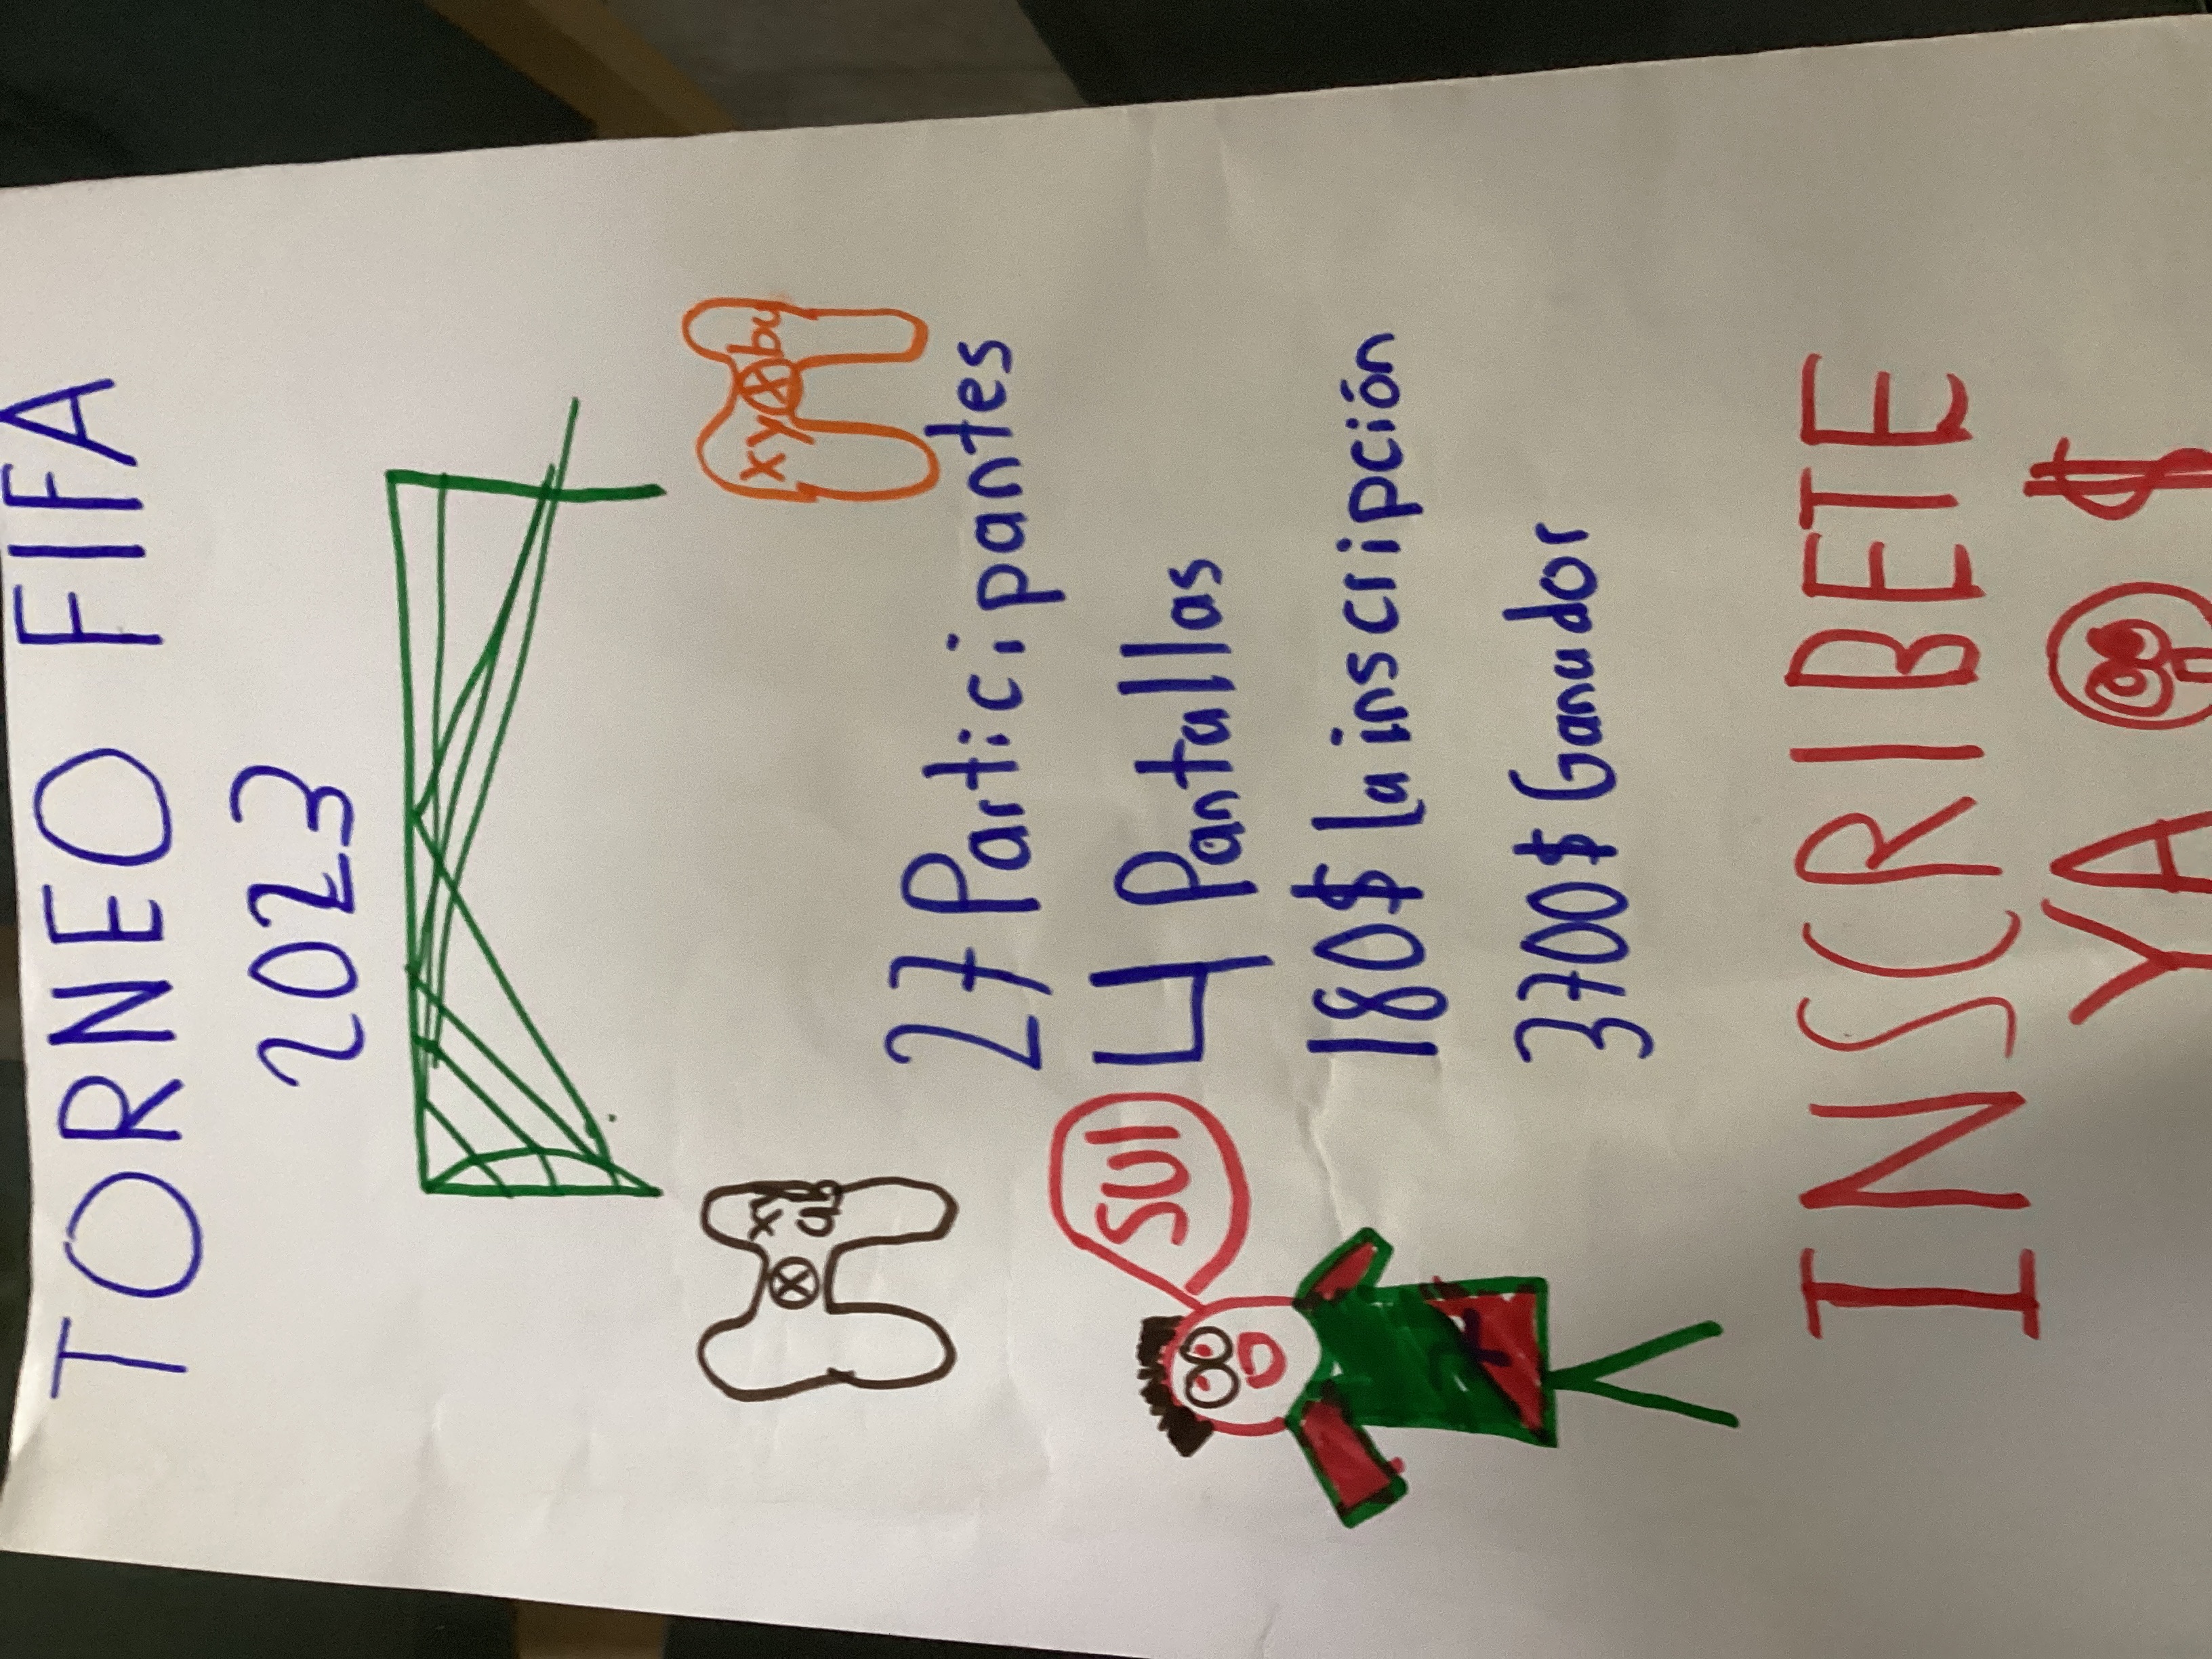 TORNEO FIFA
2023
xy
by
27 Participantes
4 Pantallas
SUI
180$ la inscripción
3700$ Ganador
7
INSCRIBETE
YA
$